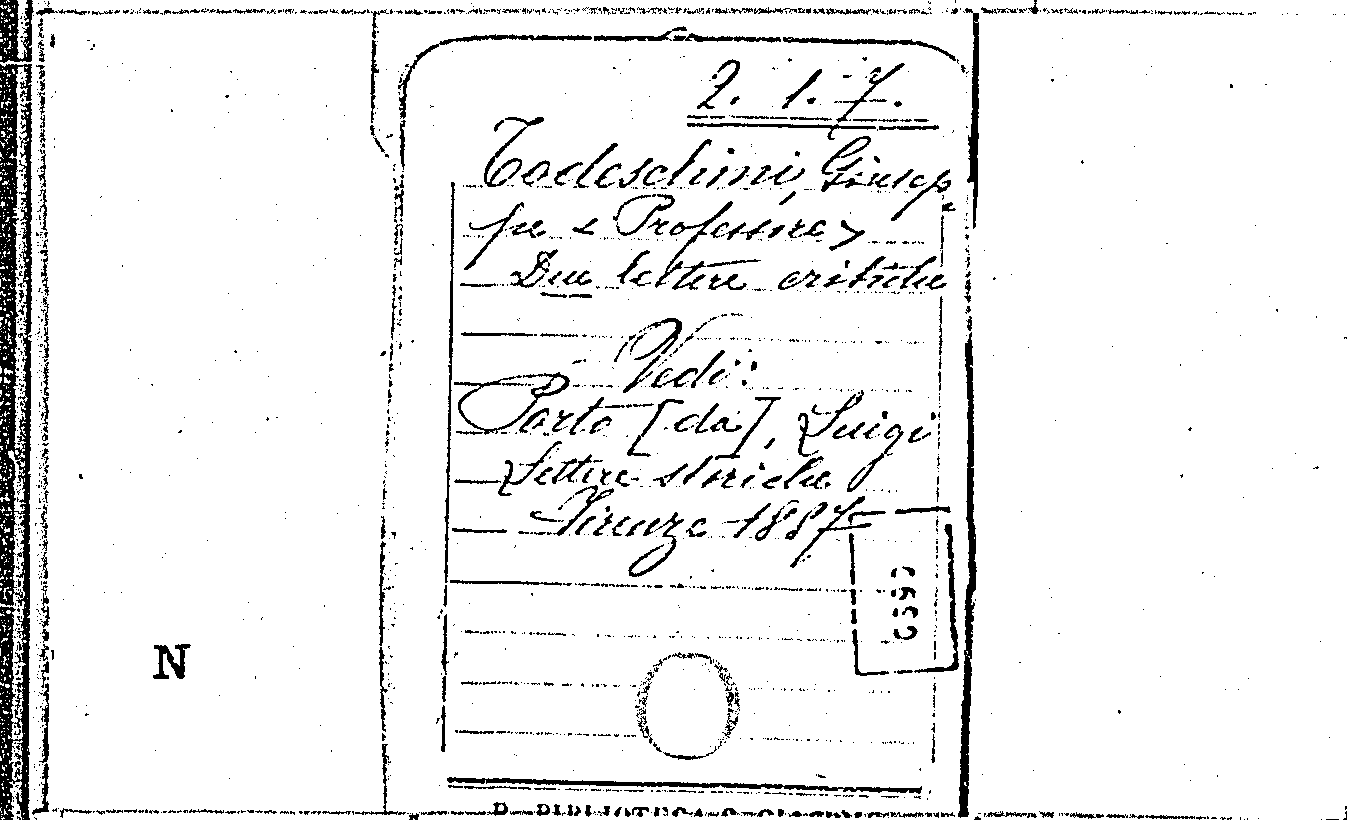 2. 1. 7.
Todeschini, Giusep
pe < Professore >
Due lettere critiche
Vedi:
Porto [da], Luigi
Lettere storiche
Firenze 1857
N